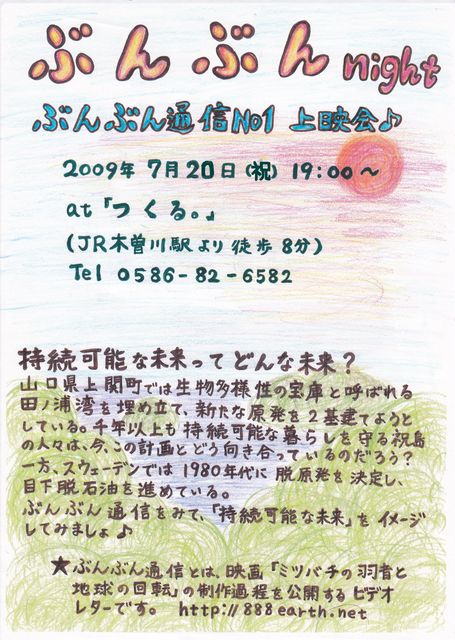 ぶんぶん night
ぶんぶん通信No1 上映会♪
2009年 7月20日(祝) 19:00〜
at「つくる。」
(JR木曽川駅より徒歩8分)
Tel 0586-82-6582
持続可能な未来ってどんな未来?
山口県上関町では生物多様性の宝庫と呼ばれる
田ノ浦湾を埋め立て、新たな原発を2基建てようと
している。千年以上も持続可能な暮らしを守る祝島
の人々は、今、この計画とどう向き合っているのだろう?
一方、スウェーデンでは1980年代に脱原発を決定し、
目下脱石油を進めている。
ぶんぶん通信をみて、「持続可能な未来」をイメージ
してみましょ♪
★ぶんぶん通信とは、映画「ミツバチの羽音と
地球の回転」の制作過程を公開するビデオ
レターです。 http://888earth.net